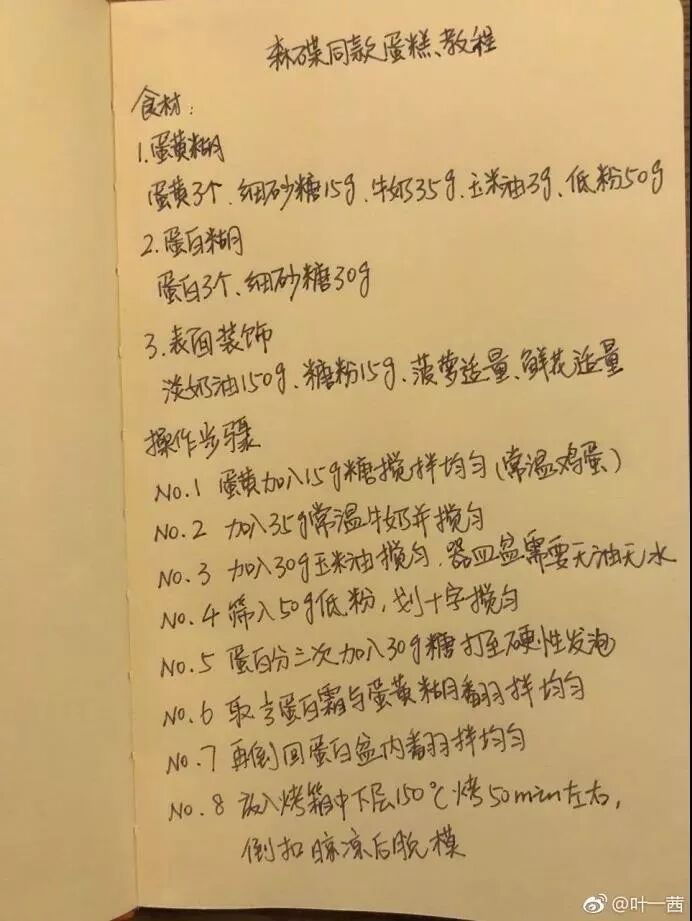 森碟同款蛋糕、教程
食材：
1.蛋黄糊
蛋黄3个、细砂糖15g、牛奶35g、玉米油3g、低粉50g
2.蛋白糊
蛋白3个、细砂糖30g
3.表面装饰
淡奶油150g、糖粉15g、菠萝适量、鲜花适量
操作步骤
No.1 蛋黄加入15g糖搅拌均匀(常温鸡蛋)
No.2 加入35g常温牛奶并搅匀
No.3 加入30g玉米油搅匀、器皿盆需要无油无水
No.4 筛入50g低粉,划十字搅匀
No.5 蛋白分三次加入30g糖打至硬性发泡
No.6 取⅓蛋白霜与蛋黄糊翻拌均匀
No.7 再倒回蛋白盆内翻拌均匀
No.8 放入烤箱中下层150℃烤50min左右,
倒扣晾凉后脱模
@叶一茜